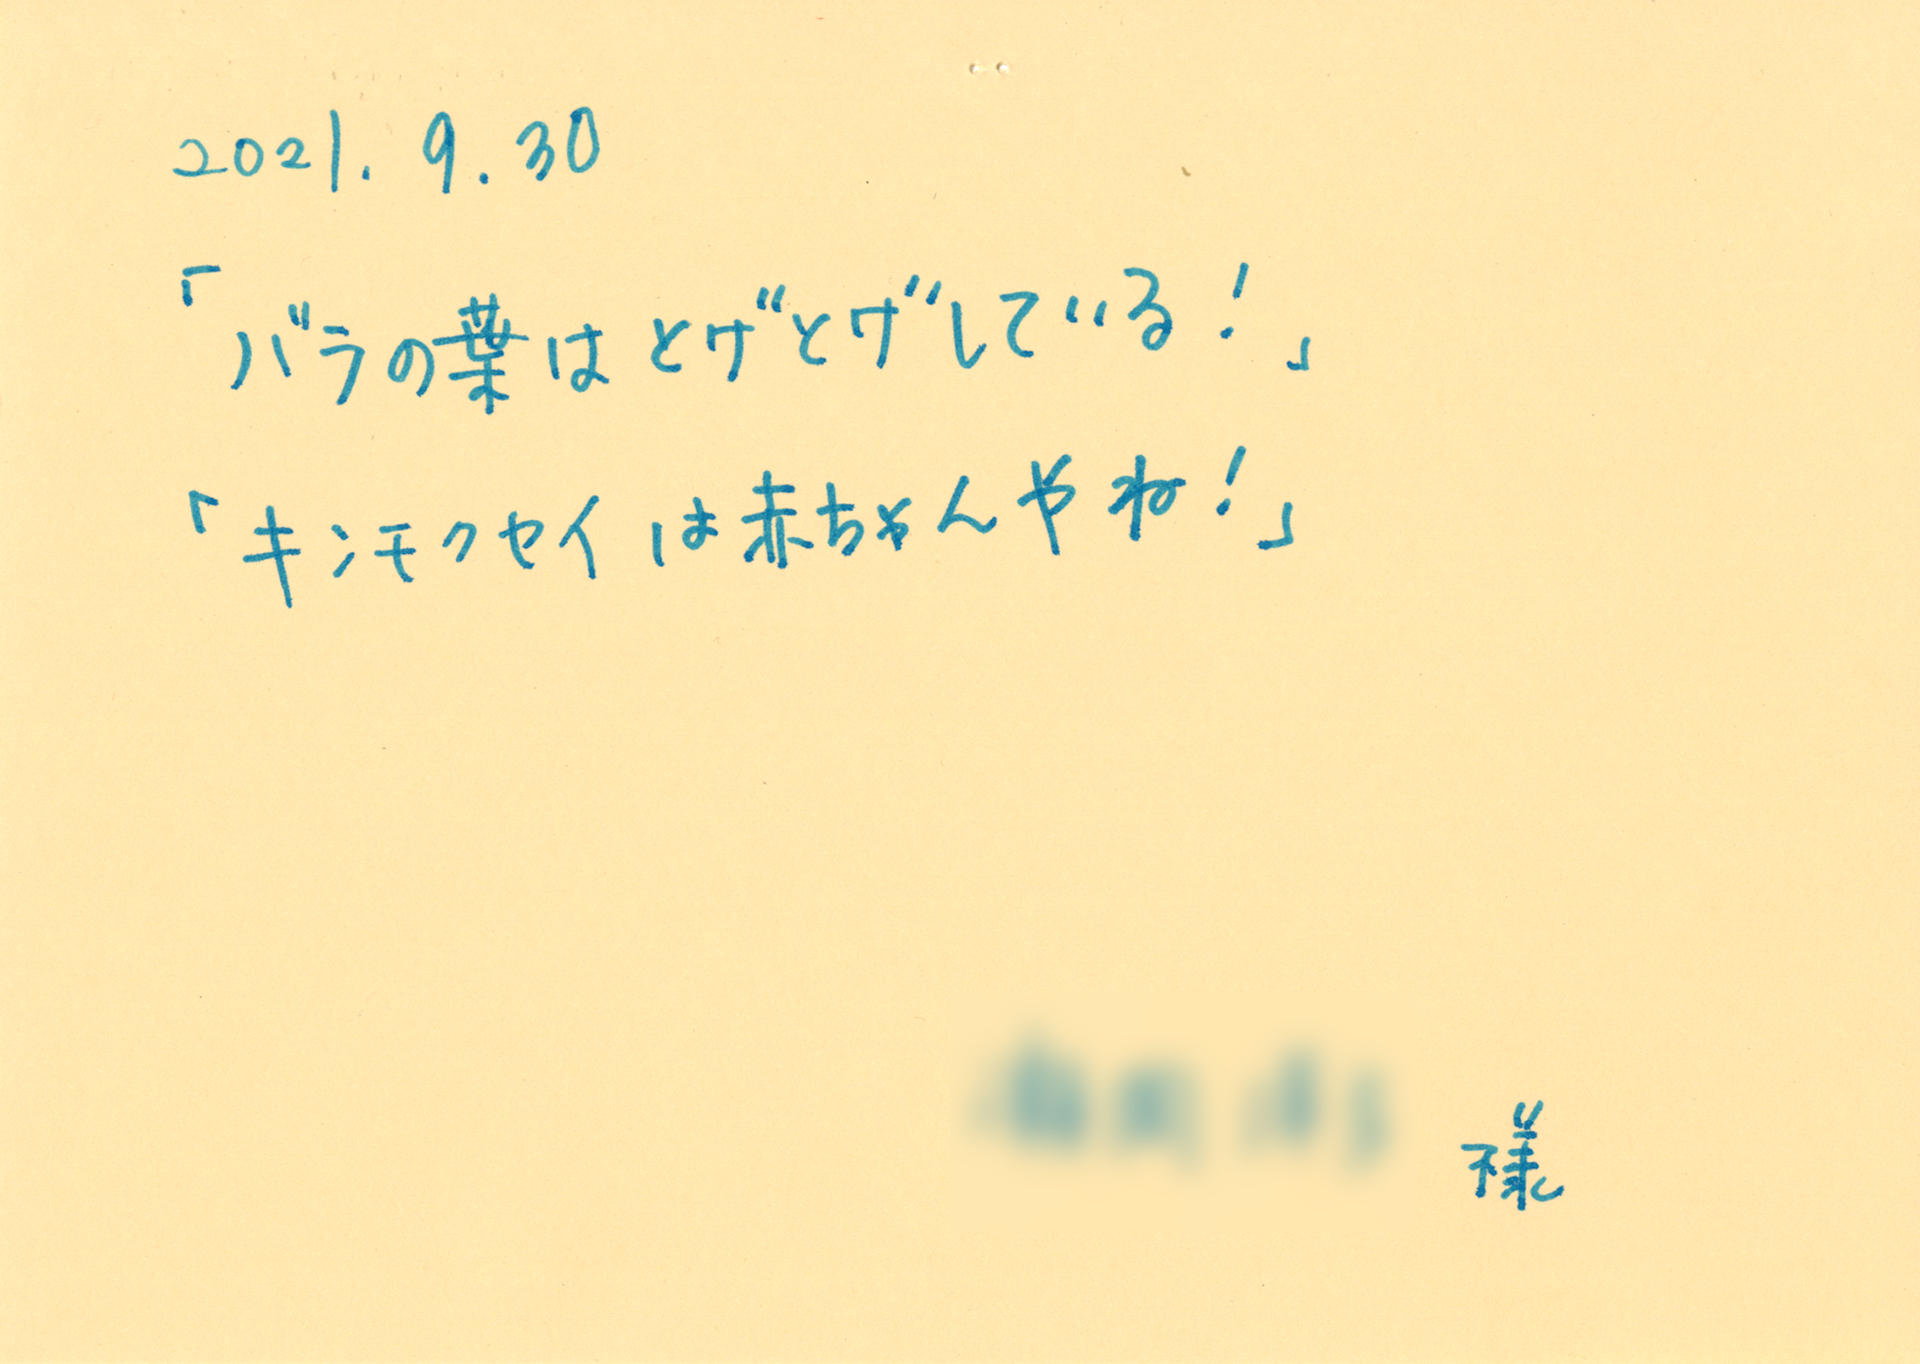 2021. 9. 30
「バラの葉はとげとげしている!」
「キンモクセイは赤ちゃんやね!」
様